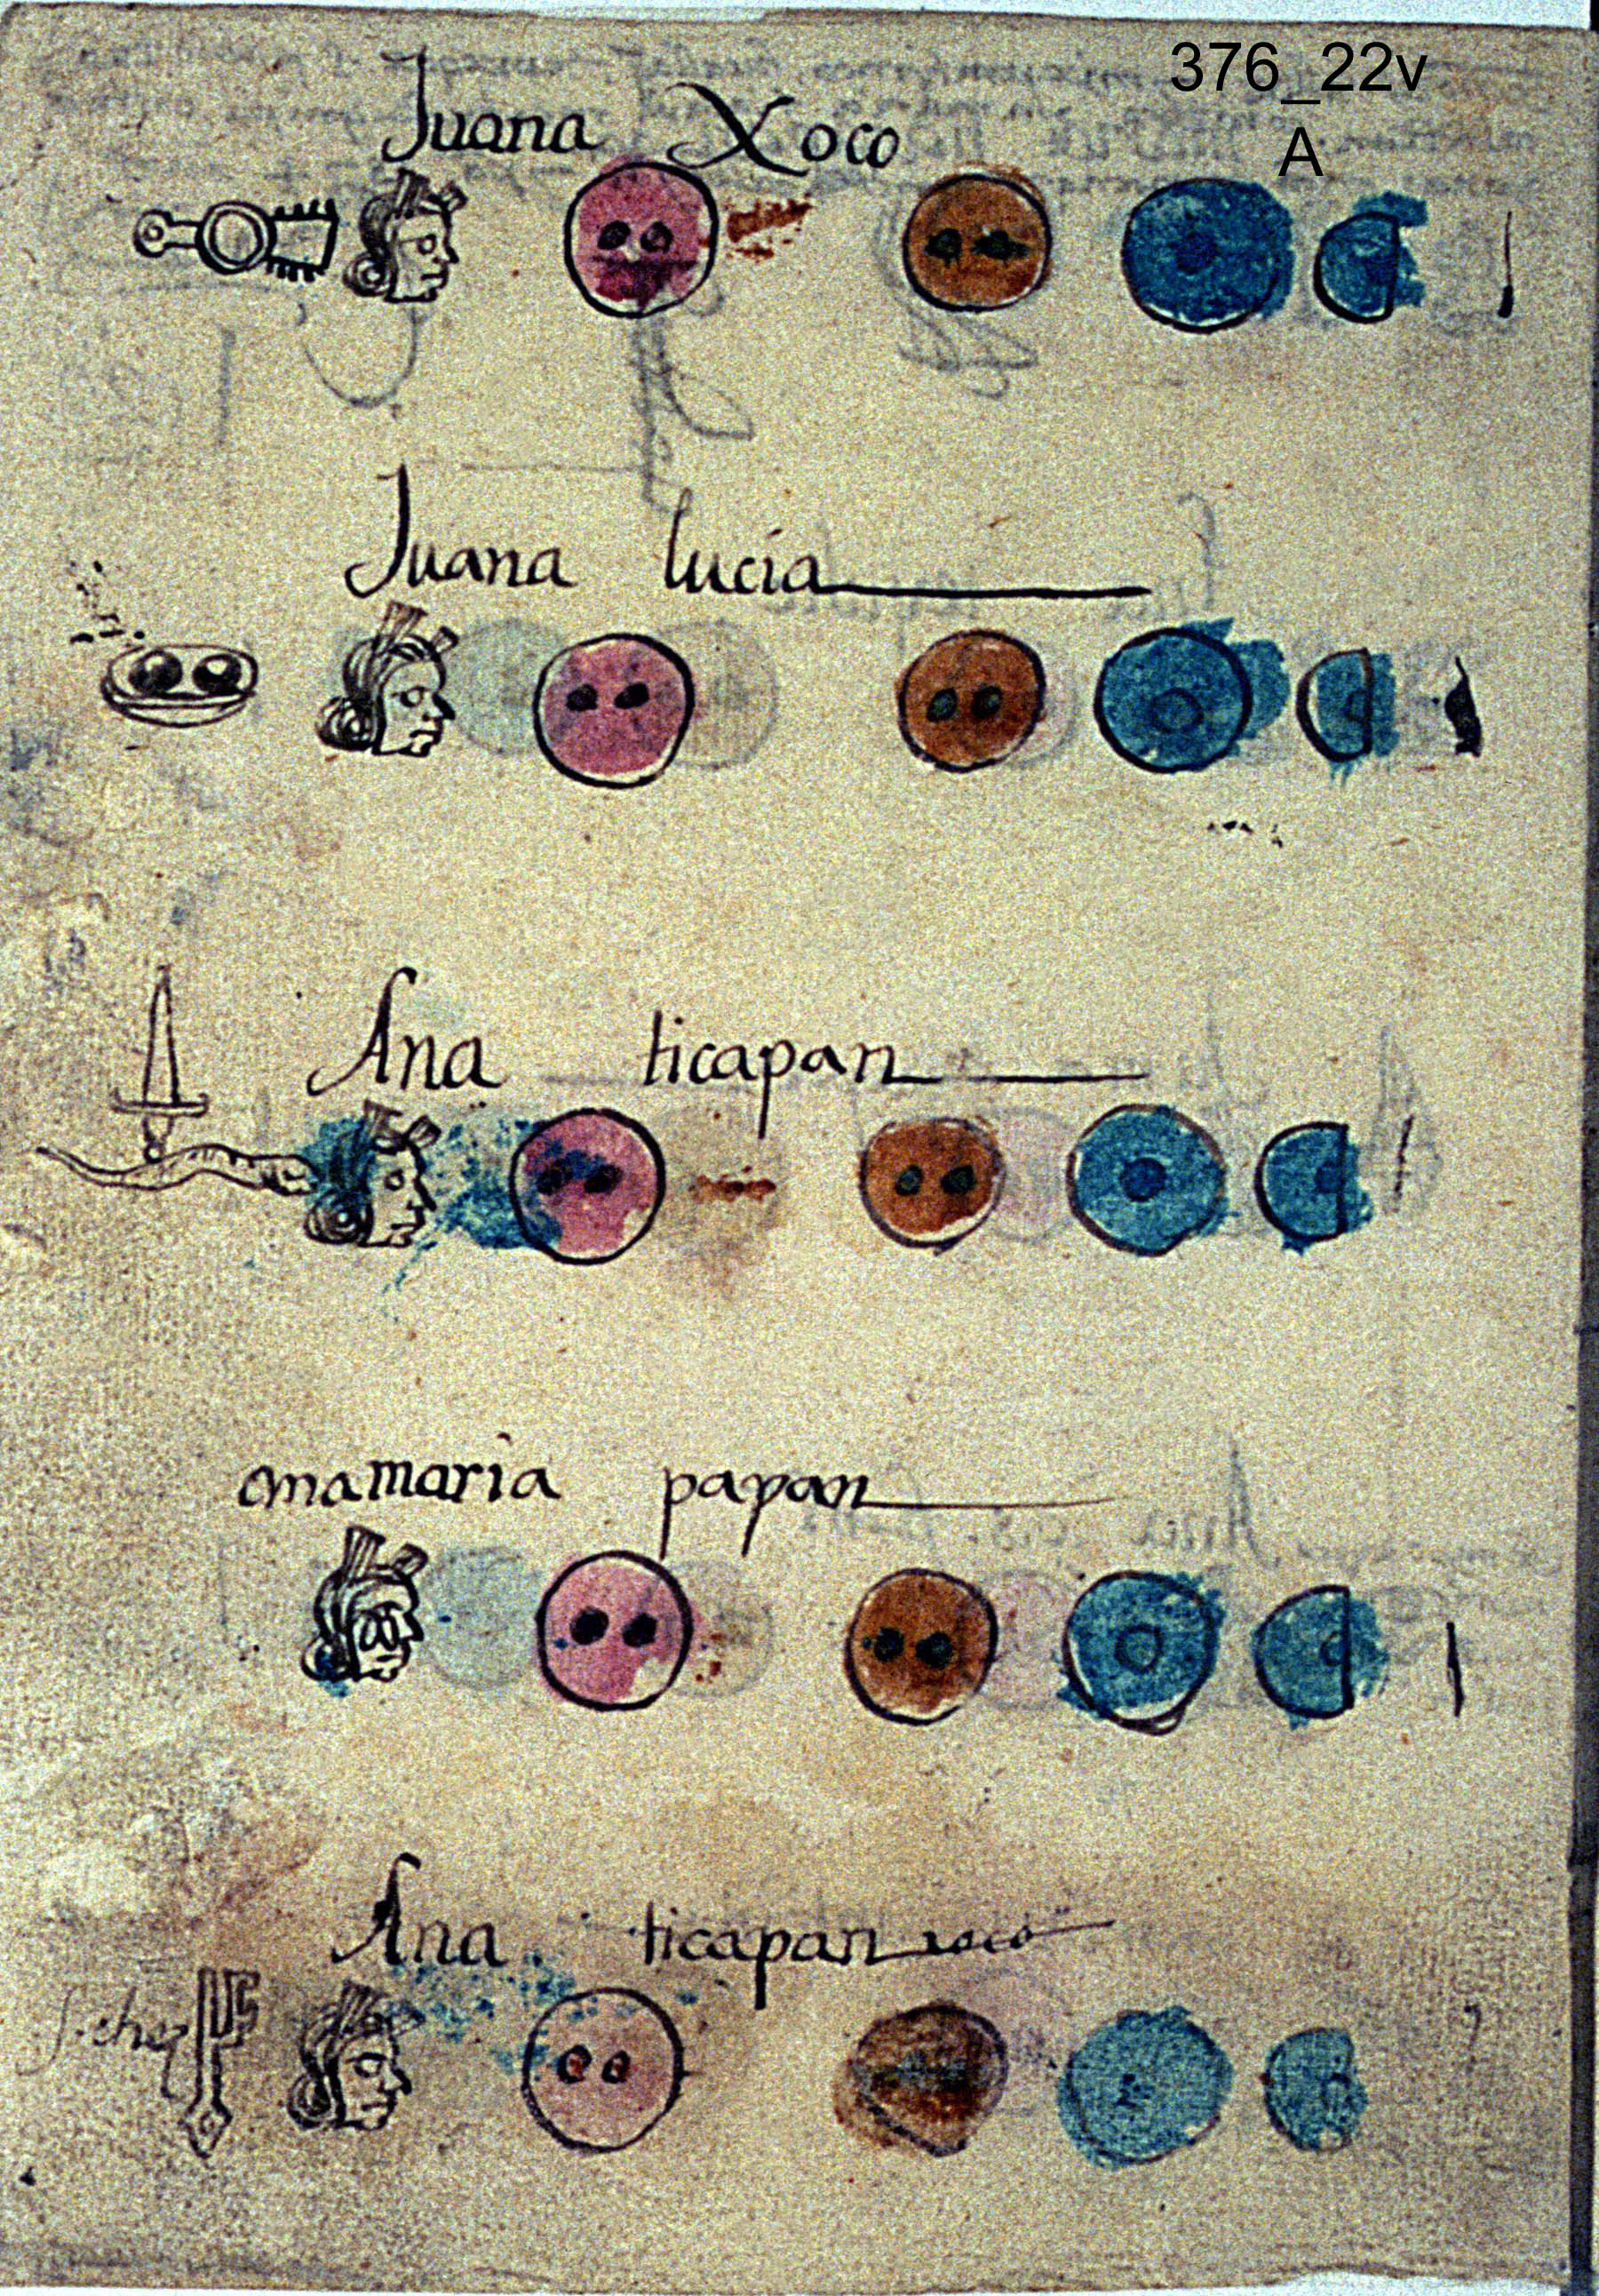 376_22v
A
Juana Xoco
Juana lucia
Ana ticapan
anamaria papan
Ana ticapan xoco